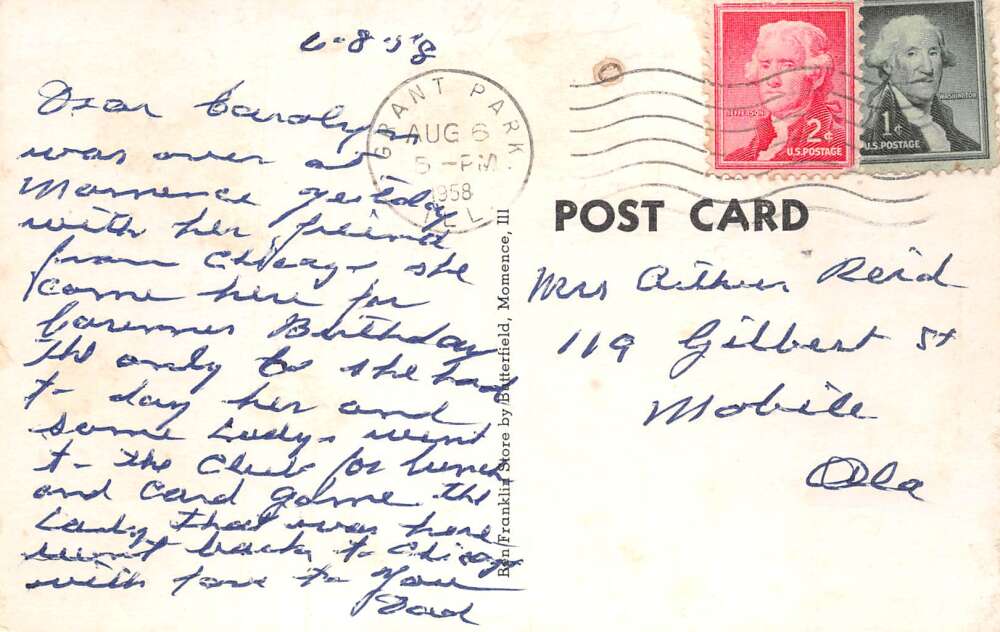 6-8-58
Dear Carolyn
was over at
Momence yestday
with her friend
from Chicago she
come here for
Birthday
the only
she had
to day her and
some Ladys went
to the Club for lunch
and card game the
Lady that was here
went back to Chicago
with love to You
Dad
GRANT PARK
AUG 6
5 -PM
1958
ILL
Ben Franklin Store by Butterfield, Momence, Ill
JEFFERSON
2¢
U.S. POSTAGE
WASHINGTON
1¢
U.S. POSTAGE
POST CARD
Mrs Arthur Reid
119 Gilbert St
Mobile
Ala